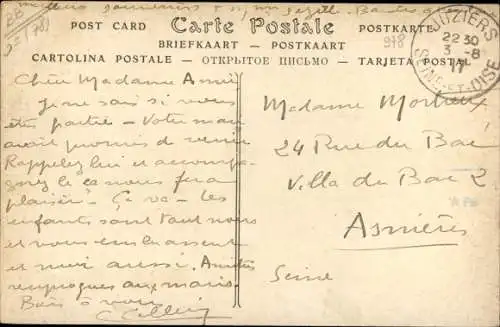 meilleurs souvenirs
POST CARD Carte Postale POSTKARTE
BRIEFKAART — POSTKAART
CARTOLINA POSTALE — ОТКРЫТОЕ ПИСЬМО — TARJETA POSTAL
978
JUZIERS
22 30
3 -8
SEINE-ET-OISE
Chère Madame Amie
Je ne sais si vous
êtes partie - Votre mari
avait promis de venir
Rappelez lui et accompa-
gnez le ça nous fera
plaisir - Ça va - Les
enfants sont tout noirs
et vous embrassent
et moi aussi. Amitiés
aux maris.
à vous
Madame
24 Rue du Bac
Villa du Bac 2
Asnières
Seine